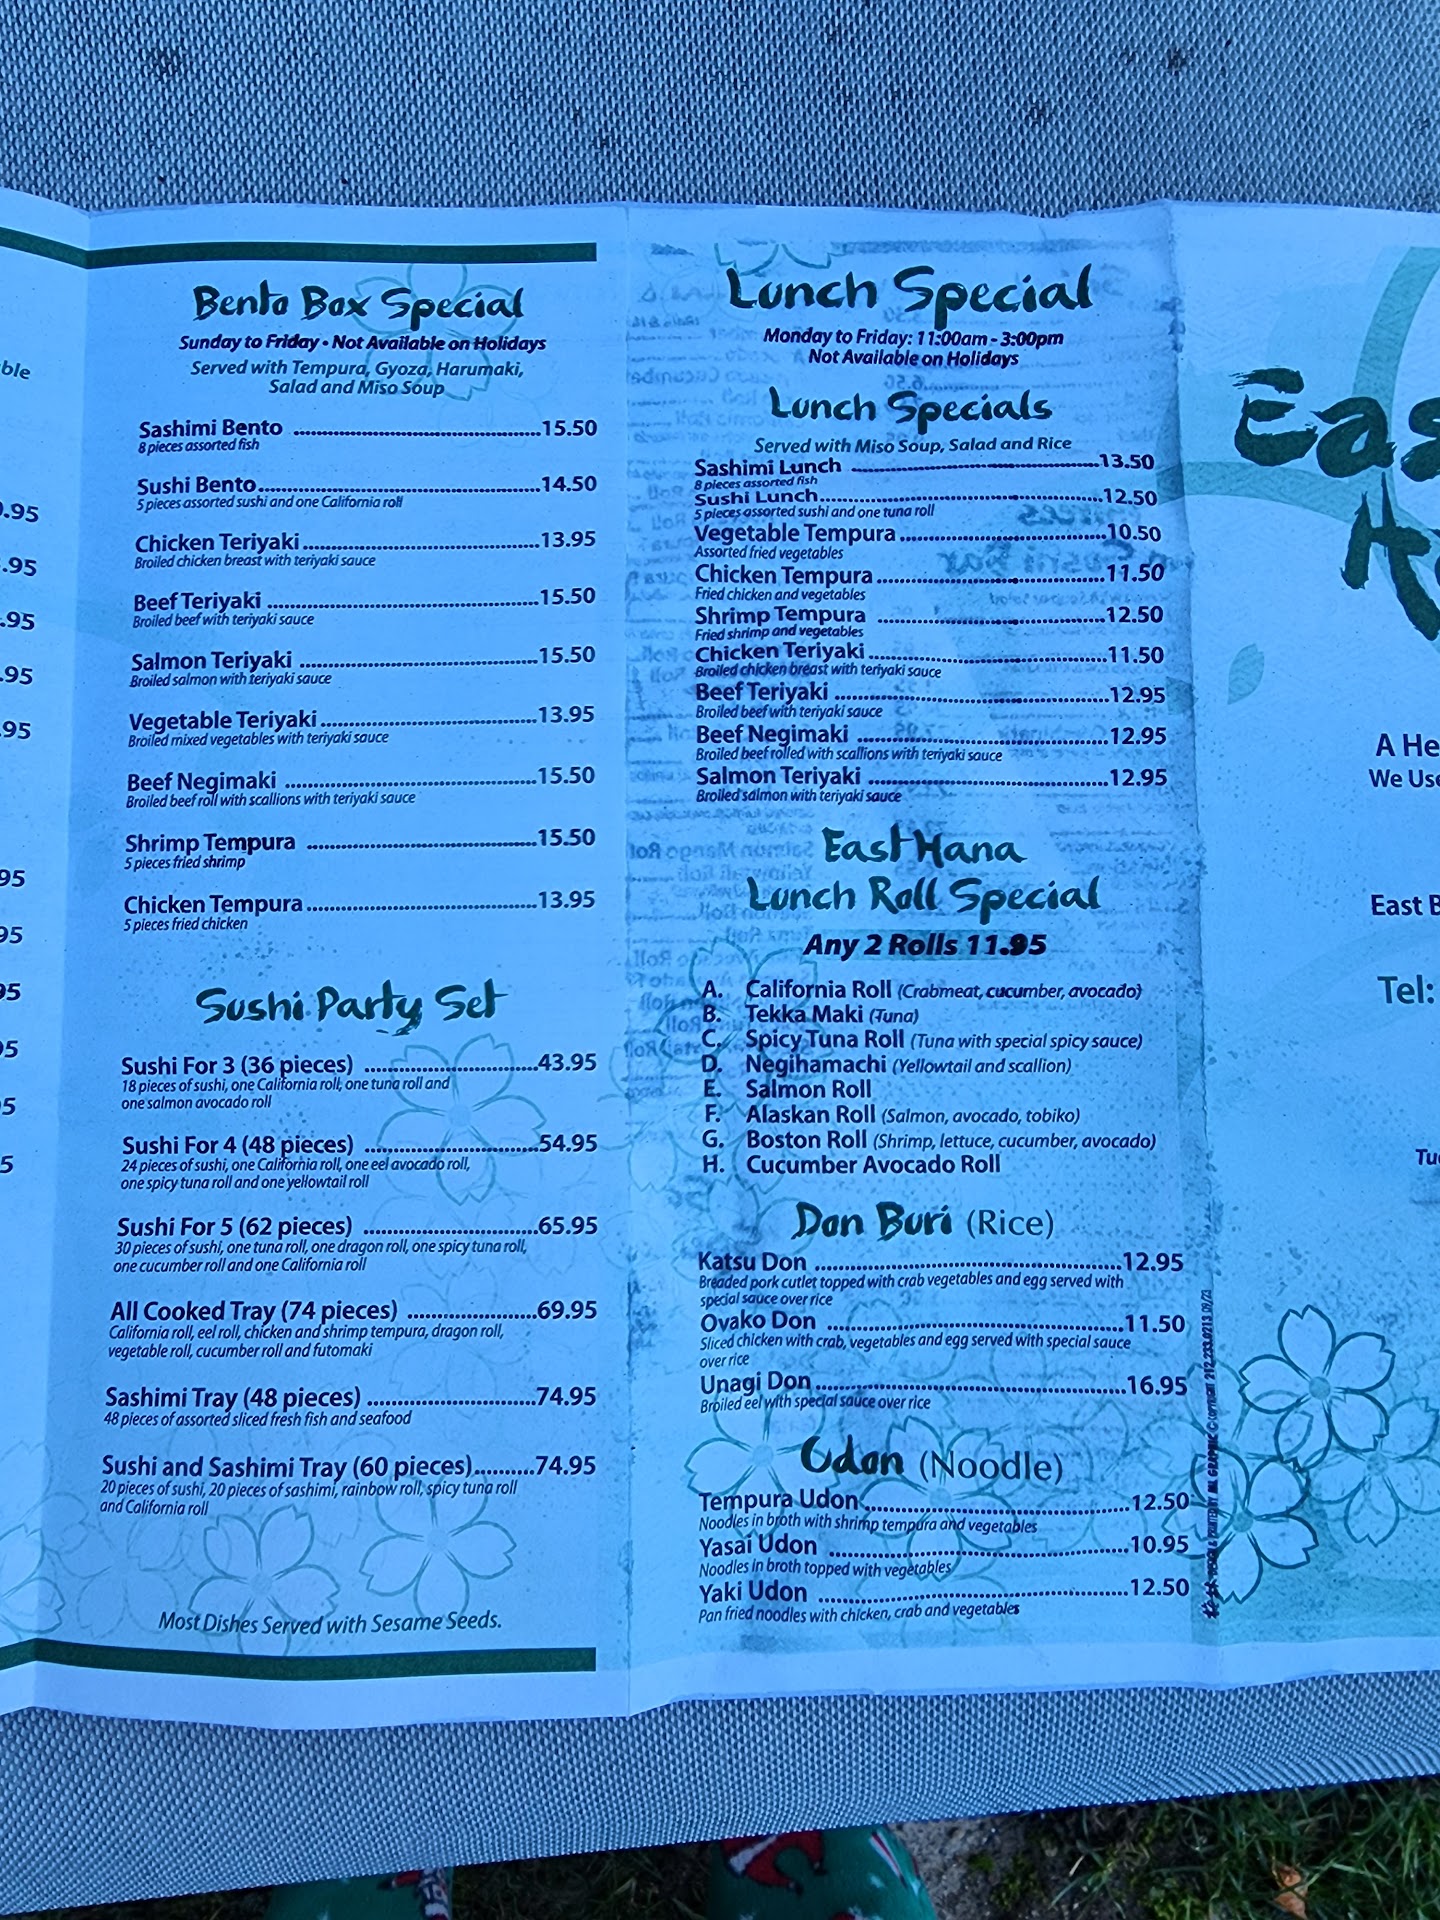 ble
.95
.95
.95
.95
95
95
95
95
95
5
5
Bento Box Special
Sunday to Friday • Not Available on Holidays
Served with Tempura, Gyoza, Harumaki,
Salad and Miso Soup
Sashimi Bento 15.50
8 pieces assorted fish
Sushi Bento 14.50
5 pieces assorted sushi and one California roll
Chicken Teriyaki 13.95
Broiled chicken breast with teriyaki sauce
Beef Teriyaki 15.50
Broiled beef with teriyaki sauce
Salmon Teriyaki 15.50
Broiled salmon with teriyaki sauce
Vegetable Teriyaki 13.95
Broiled mixed vegetables with teriyaki sauce
Beef Negimaki 15.50
Broiled beef roll with scallions with teriyaki sauce
Shrimp Tempura 15.50
5 pieces fried shrimp
Chicken Tempura 13.95
5 pieces fried chicken
Sushi Party Set
Sushi For 3 (36 pieces) 43.95
18 pieces of sushi, one California roll, one tuna roll and
one salmon avocado roll
Sushi For 4 (48 pieces) 54.95
24 pieces of sushi, one California roll, one eel avocado roll,
one spicy tuna roll and one yellowtail roll
Sushi For 5 (62 pieces) 65.95
30 pieces of sushi, one tuna roll, one dragon roll, one spicy tuna roll,
one cucumber roll and one California roll
All Cooked Tray (74 pieces) 69.95
California roll, eel roll, chicken and shrimp tempura, dragon roll,
vegetable roll, cucumber roll and futomaki
Sashimi Tray (48 pieces) 74.95
48 pieces of assorted sliced fresh fish and seafood
Sushi and Sashimi Tray (60 pieces) 74.95
20 pieces of sushi, 20 pieces of sashimi, rainbow roll, spicy tuna roll
and California roll
Most Dishes Served with Sesame Seeds.
Lunch Special
Monday to Friday: 11:00am - 3:00pm
Not Available on Holidays
Lunch Specials
Served with Miso Soup, Salad and Rice
Sashimi Lunch 13.50
8 pieces assorted fish
Sushi Lunch 12.50
5 pieces assorted sushi and one tuna roll
Vegetable Tempura 10.50
Assorted fried vegetables
Chicken Tempura 11.50
Fried chicken and vegetables
Shrimp Tempura 12.50
Fried shrimp and vegetables
Chicken Teriyaki 11.50
Broiled chicken breast with teriyaki sauce
Beef Teriyaki 12.95
Broiled beef with teriyaki sauce
Beef Negimaki 12.95
Broiled beef rolled with scallions with teriyaki sauce
Salmon Teriyaki 12.95
Broiled salmon with teriyaki sauce
East Hana
Lunch Roll Special
Any 2 Rolls 11.95
A. California Roll (Crabmeat, cucumber, avocado)
B. Tekka Maki (Tuna)
C. Spicy Tuna Roll (Tuna with special spicy sauce)
D. Negihamachi (Yellowtail and scallion)
E. Salmon Roll
F. Alaskan Roll (Salmon, avocado, tobiko)
G. Boston Roll (Shrimp, lettuce, cucumber, avocado)
H. Cucumber Avocado Roll
Don Buri (Rice)
Katsu Don 12.95
Breaded pork cutlet topped with crab vegetables and egg served with
special sauce over rice
Oyako Don 11.50
Sliced chicken with crab, vegetables and egg served with special sauce
over rice
Unagi Don 16.95
Broiled eel with special sauce over rice
Udon (Noodle)
Tempura Udon 12.50
Noodles in broth with shrimp tempura and vegetables
Yasai Udon 10.95
Noodles in broth topped with vegetables
Yaki Udon 12.50
Pan fried noodles with chicken, crab and vegetables
Eas
H
A He
We Use
East B
Tel:
Tu